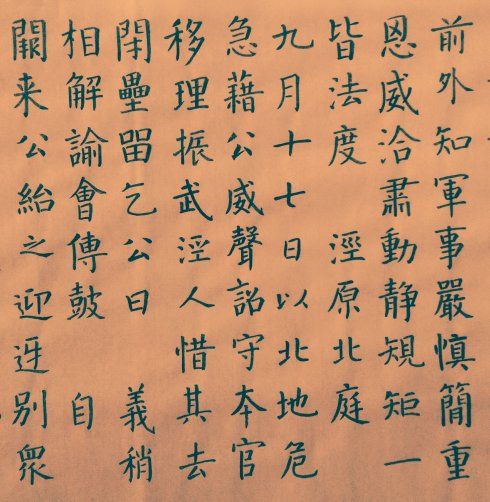 前外知軍事嚴慎簡重
恩威洽肅動静規矩一
皆法度 涇原北庭
九月十七日以北地危
急藉公威聲詔守本官
移理振武涇人惜其去
閉壘留乞公曰 義稍
相解諭會傳鼓 自
闕来公紿之迎迓别衆